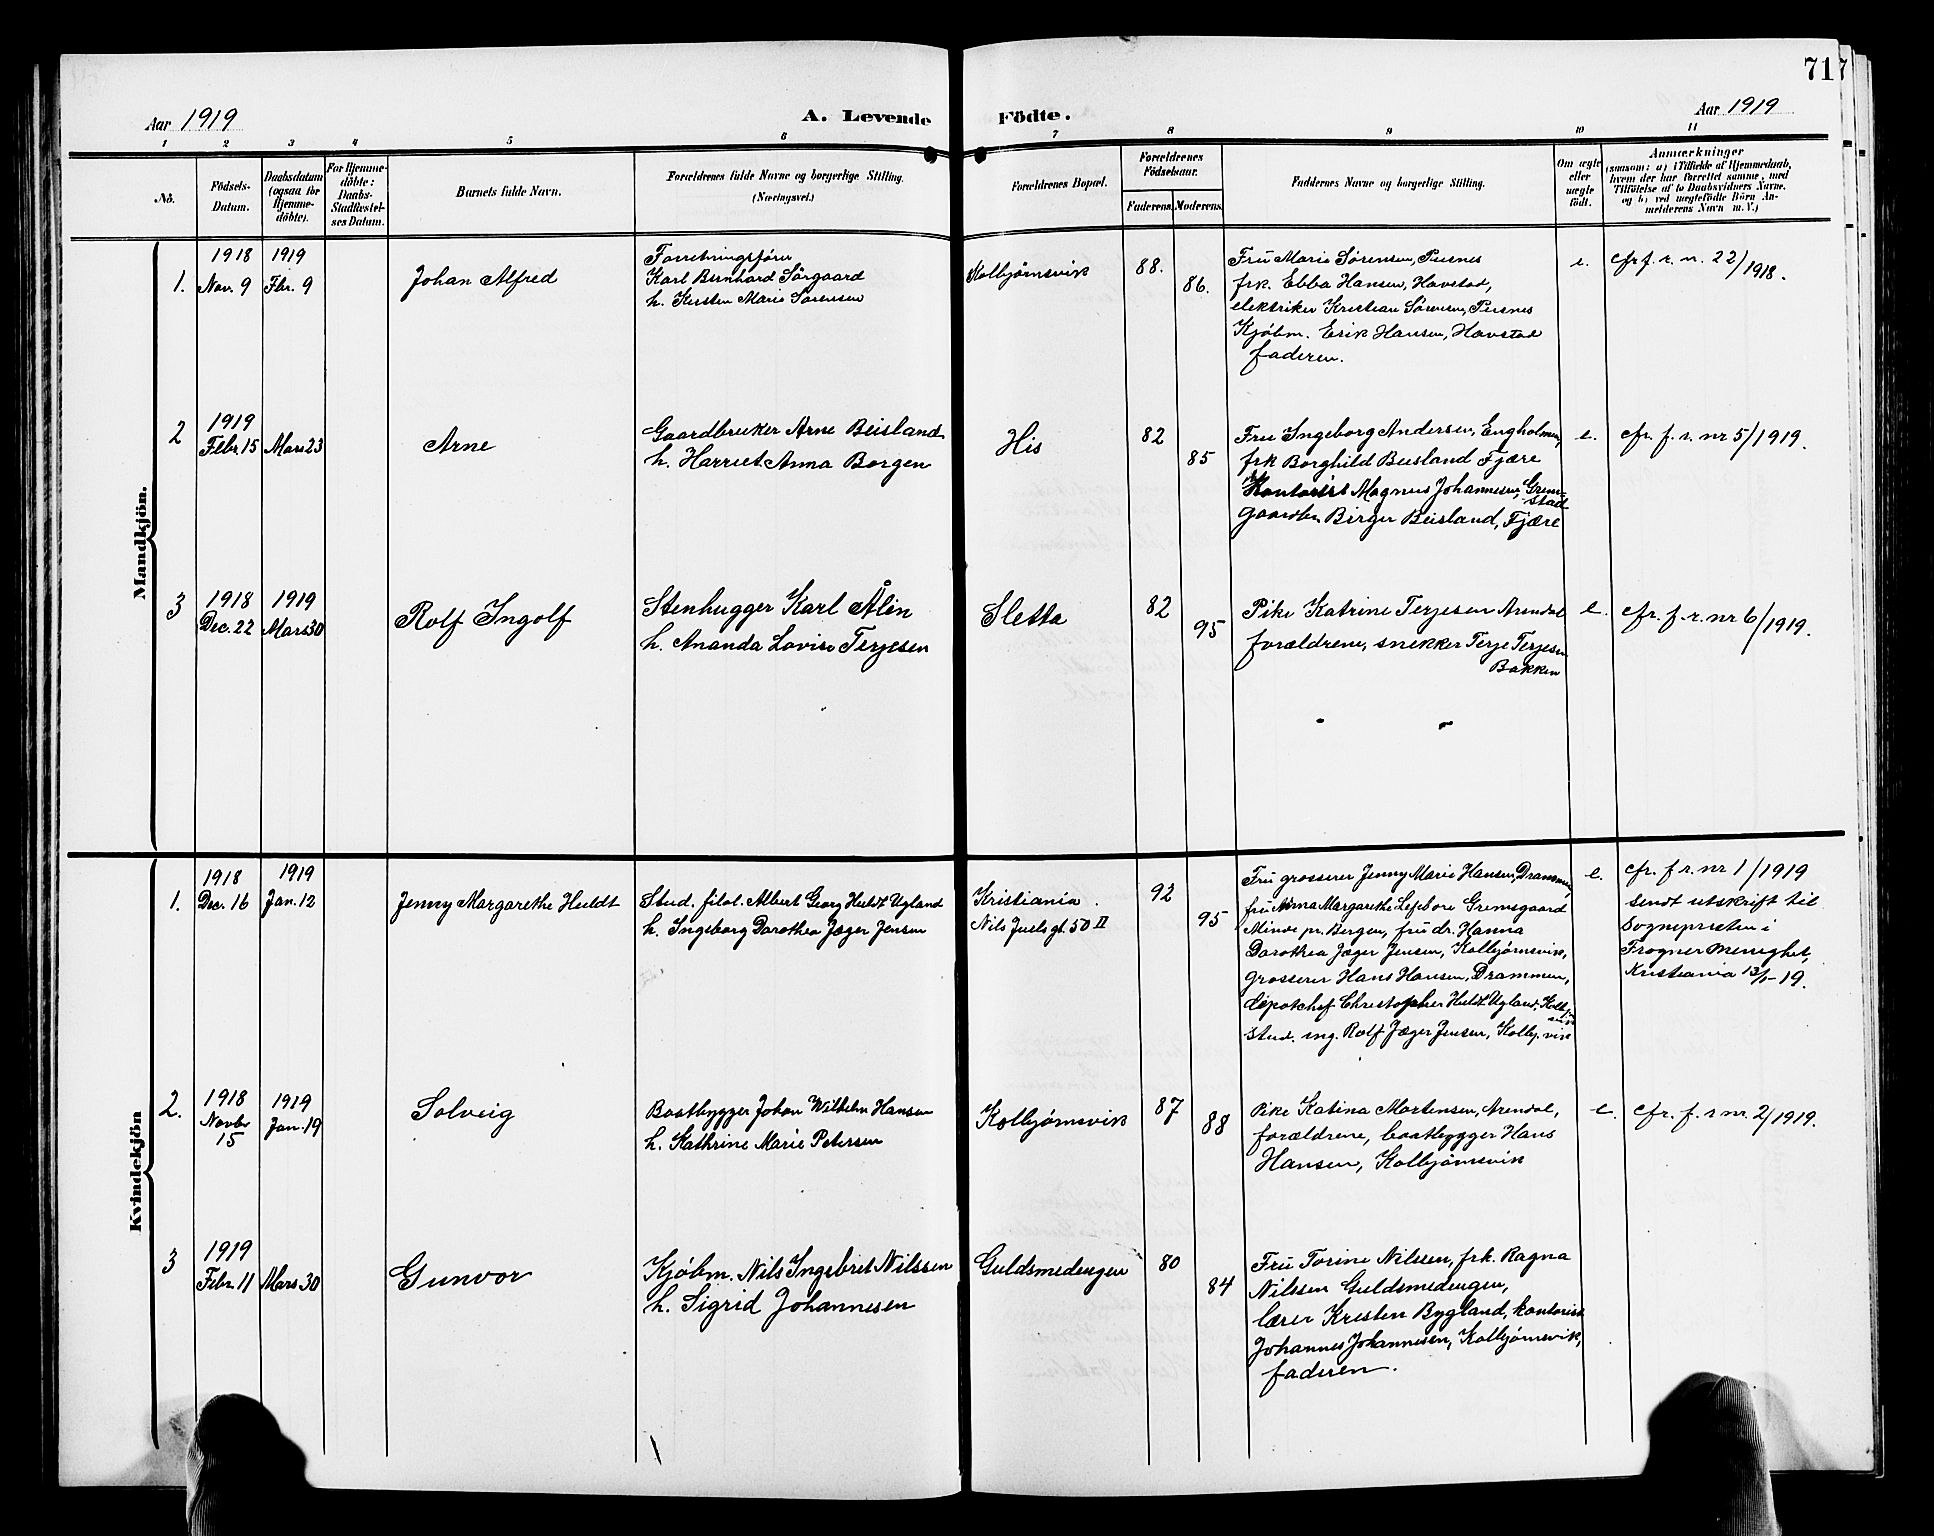 717
Aar 1919
A. Levende Födte.
Aar 1919
1 2 3 4 5 6 7 8 9 10 11
No.
Födsels-
Datum.
Daabsdatum
(ogsaa for
Hjemme-
döbte).
For Hjemme-
döbte:
Daabs-
Stadfestel-
ses Datum.
Barnets fulde Navn.
Forældrenes fulde Navne og borgerlige Stilling.
(Næringsvei.)
Forældrenes Bopæl.
Forældrenes
Födselsaar.
Faderens. Moderens.
Faddernes Navne og borgerlige Stilling.
Om ægte
eller
uægte
födt.
Anmærkninger
(saasom: a) i Tilfælde af Hjemmedaab,
hvem der har forrettet samme, med
Tilföielse af to Daabsvidners Navne,
og b) ved uægtefödte Börn An-
melderens Navn m. V.)
Mandkjön.
1.
1918
Nov. 9
1919
Fbr. 9
Johan Alfred
Forretningsfører
Karl Bernhard Sørgaard
h. Kirsten Marie Sørensen
Kolbjørnsvik
88.
86.
Fru Marie Sørensen, Pusnes
frk. Ebba Hansen, Havstad,
elektriker Kristian Sørensen, Pusnes
Kjøbm. Erik Hansen, Havstad
faderen.
e.
cfr. f. r. n. 22/1918.
2
1919
Febr. 15
Mars 23
Arne
Gaardbruker Arne Beisland
h. Harriet Anna Borgen
His
82
85
Fru Ingeborg Andersen, Engholmen,
frk Borghild Beisland Fjære
Kontorist Magnus Johannesen, Grim-
stad
gaardbr. Birger Beisland, Fjære
e.
cfr. f. r. nr 5/1919.
3
1918
Dec. 22
1919
Mars 30
Rolf Ingolf
Stenhugger Karl Ålin
h. Ananda Lovise Terjesen
Sletta
82
95
Pike Katrine Terjesen Arendal
forældrene, snekker Terje Terjesen
Bakken
e.
cfr. f. r. nr 6/1919.
Kvindekjön
1.
1918
Dec. 16
1919
Jan. 12
Jenny Margarethe Huldt
Stud. filol. Albert Georg Huldt Ugland
h. Ingeborg Dorothea Jæger Jensen
Kristiania.
Nils Juels gt. 50 II
92
95
Fru grosserer Jenny Marie Hansen, Drammen,
fru Margarethe Grimsgaard
Minde pr. Bergen, fru dr. Hanna
Dorothea Jæger Jensen, Kolbjørnsvik,
grosserer Hans Hansen, Drammen,
depotchef Christopher Huldt Ugland,
stud. ing. Rolf Jæger Jensen, Kolbj. vik
e.
cfr. f. r. nr 1/1919
sendt utskrift til
Sognepresten i
Frogner Menighet,
Kristiania 13/1-19.
2.
1918
Novbr
15
1919
Jan. 19
Solveig
Baatbygger Johan Wilhelm Hansen
h. Kathrine Marie Petersen
Kolbjørnsvik
87
88
Pike Katina Mortensen, Arendal,
forældrene, baatbygger Hans
Hansen, Kolbjørnsvik
e.
cfr. f. r nr. 2/1919.
3
1919
Febr. 11
Mars 30
Gunvor
Kjøbm. Nils Ingebret Nilssen
h. Sigrid Johannesen
Guldsmedengen
80
84
Fru Torine Nilssen, frk. Ragna
Nilssen Guldsmedengen,
lærer Kresten Bygland, kontorist
Johannes Johannesen, Kolbjørnsvik,
faderen.